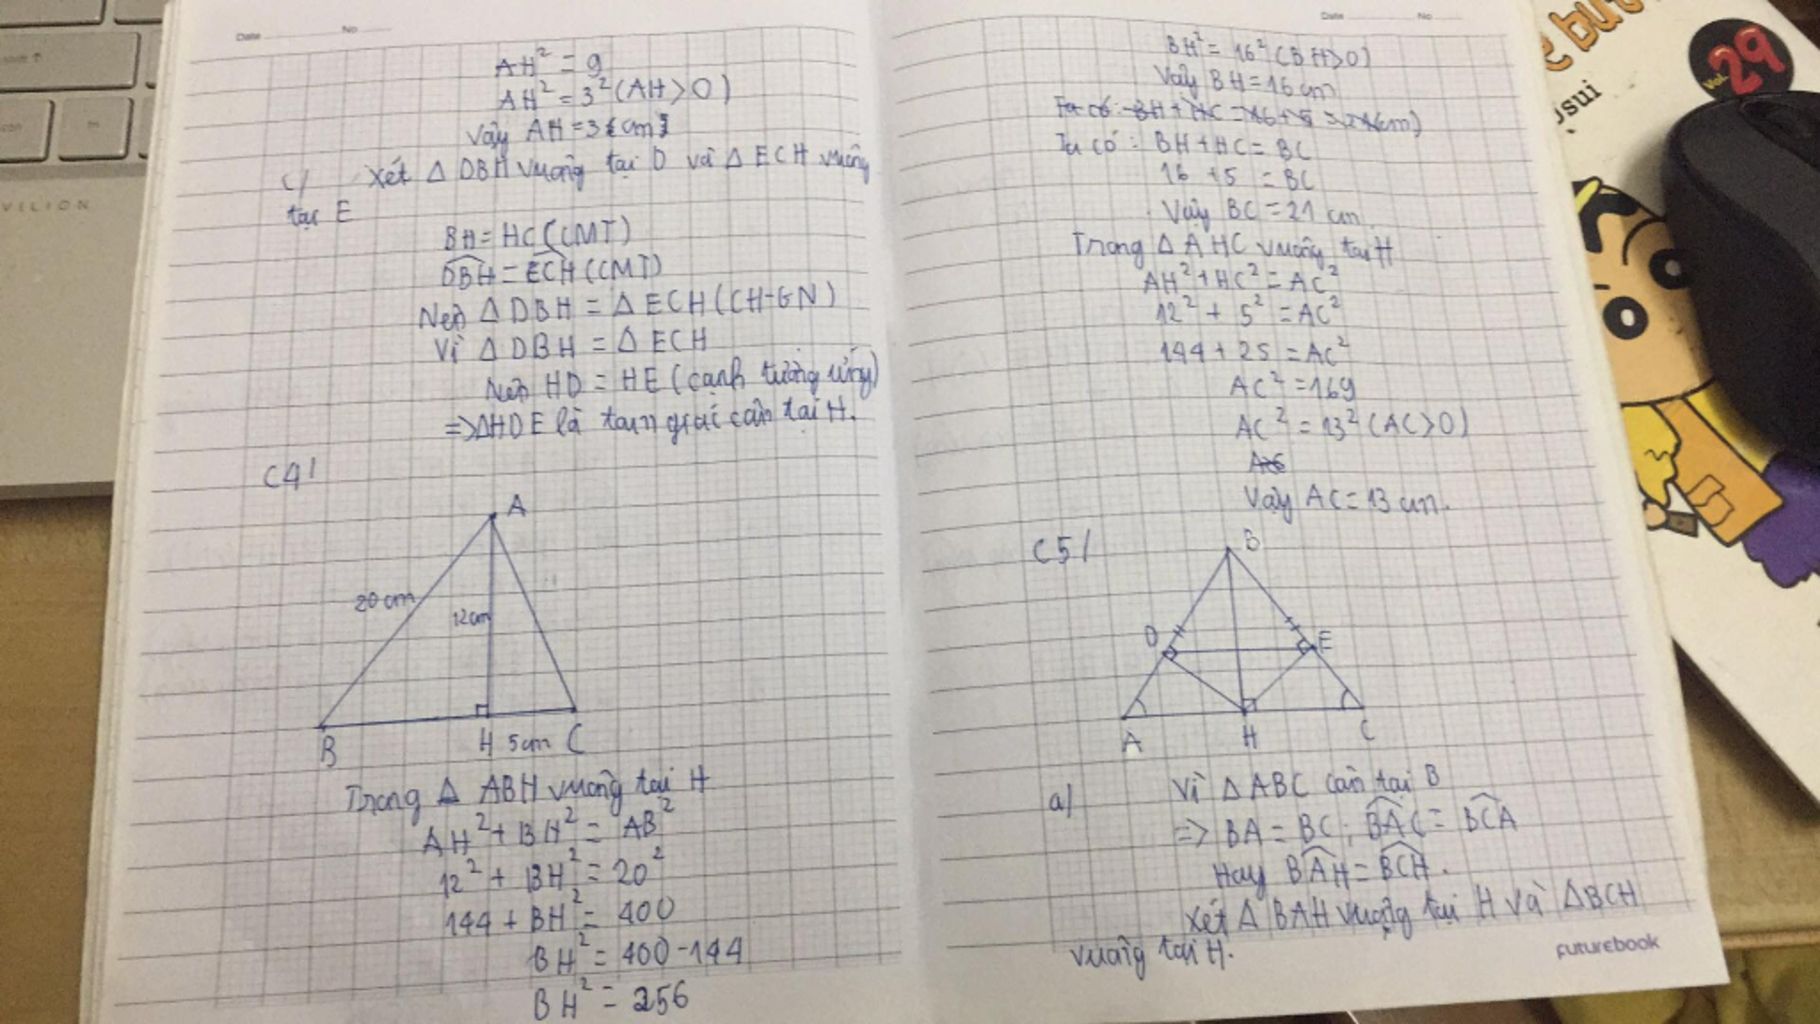 Date No
AH² = 9
AH² = 3² (AH > 0)
Vậy AH = 3 (cm)
c/ Xét Δ DBH vuông tại D và Δ ECH vuông
tại E
BH = HC (CMT)
DBH = ECH (CMT)
Nên Δ DBH = Δ ECH (CH-GN)
Vì Δ DBH = Δ ECH
Nên HD = HE (cạnh tương ứng)
=> ΔHDE là tam giác cân tại H.
C4/
A
20 cm
12cm
B H 5cm C
Trong Δ ABH vuông tại H
AH² + BH² = AB²
12² + BH² = 20²
144 + BH² = 400
BH² = 400 - 144
BH² = 256
Date No
BH² = 16² (BH > 0)
Vậy BH = 16 cm
Ta có: BH + HC = 16 + 5 = 21(cm)
Ta có: BH + HC = BC
16 + 5 = BC
Vậy BC = 21 cm
Trong Δ AHC vuông tại H
AH² + HC² = AC²
12² + 5² = AC²
144 + 25 = AC²
AC² = 169
AC² = 13² (AC > 0)
Vậy AC = 13 cm.
C5/
B
D E
A H C
a/ Vì Δ ABC cân tại B
=> BA = BC; BAC = BCA
Hay BAH = BCH.
Xét Δ BAH vuông tại H và ΔBCH
vuông tại H.
futurebook
VILION
shift
fn
Vol. 29
sui